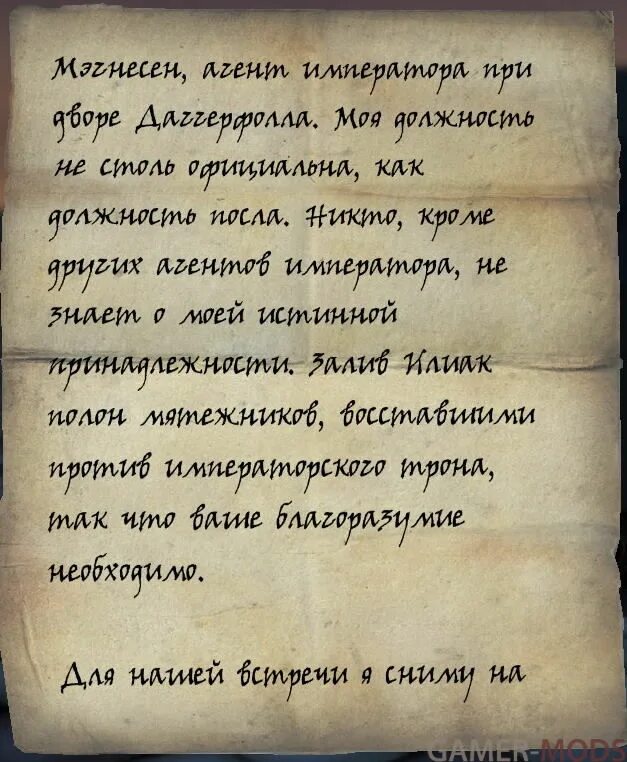 Мэгнесен, агент императора при
дворе Даггерфолла. Моя должность
не столь официальна, как
должность посла. Никто, кроме
других агентов императора, не
знает о моей истинной
принадлежности. Залив Илиак
полон мятежников, восставшими
против императорского трона,
так что ваше благоразумие
необходимо.
Для нашей встречи я сниму на
GAMER-MODS